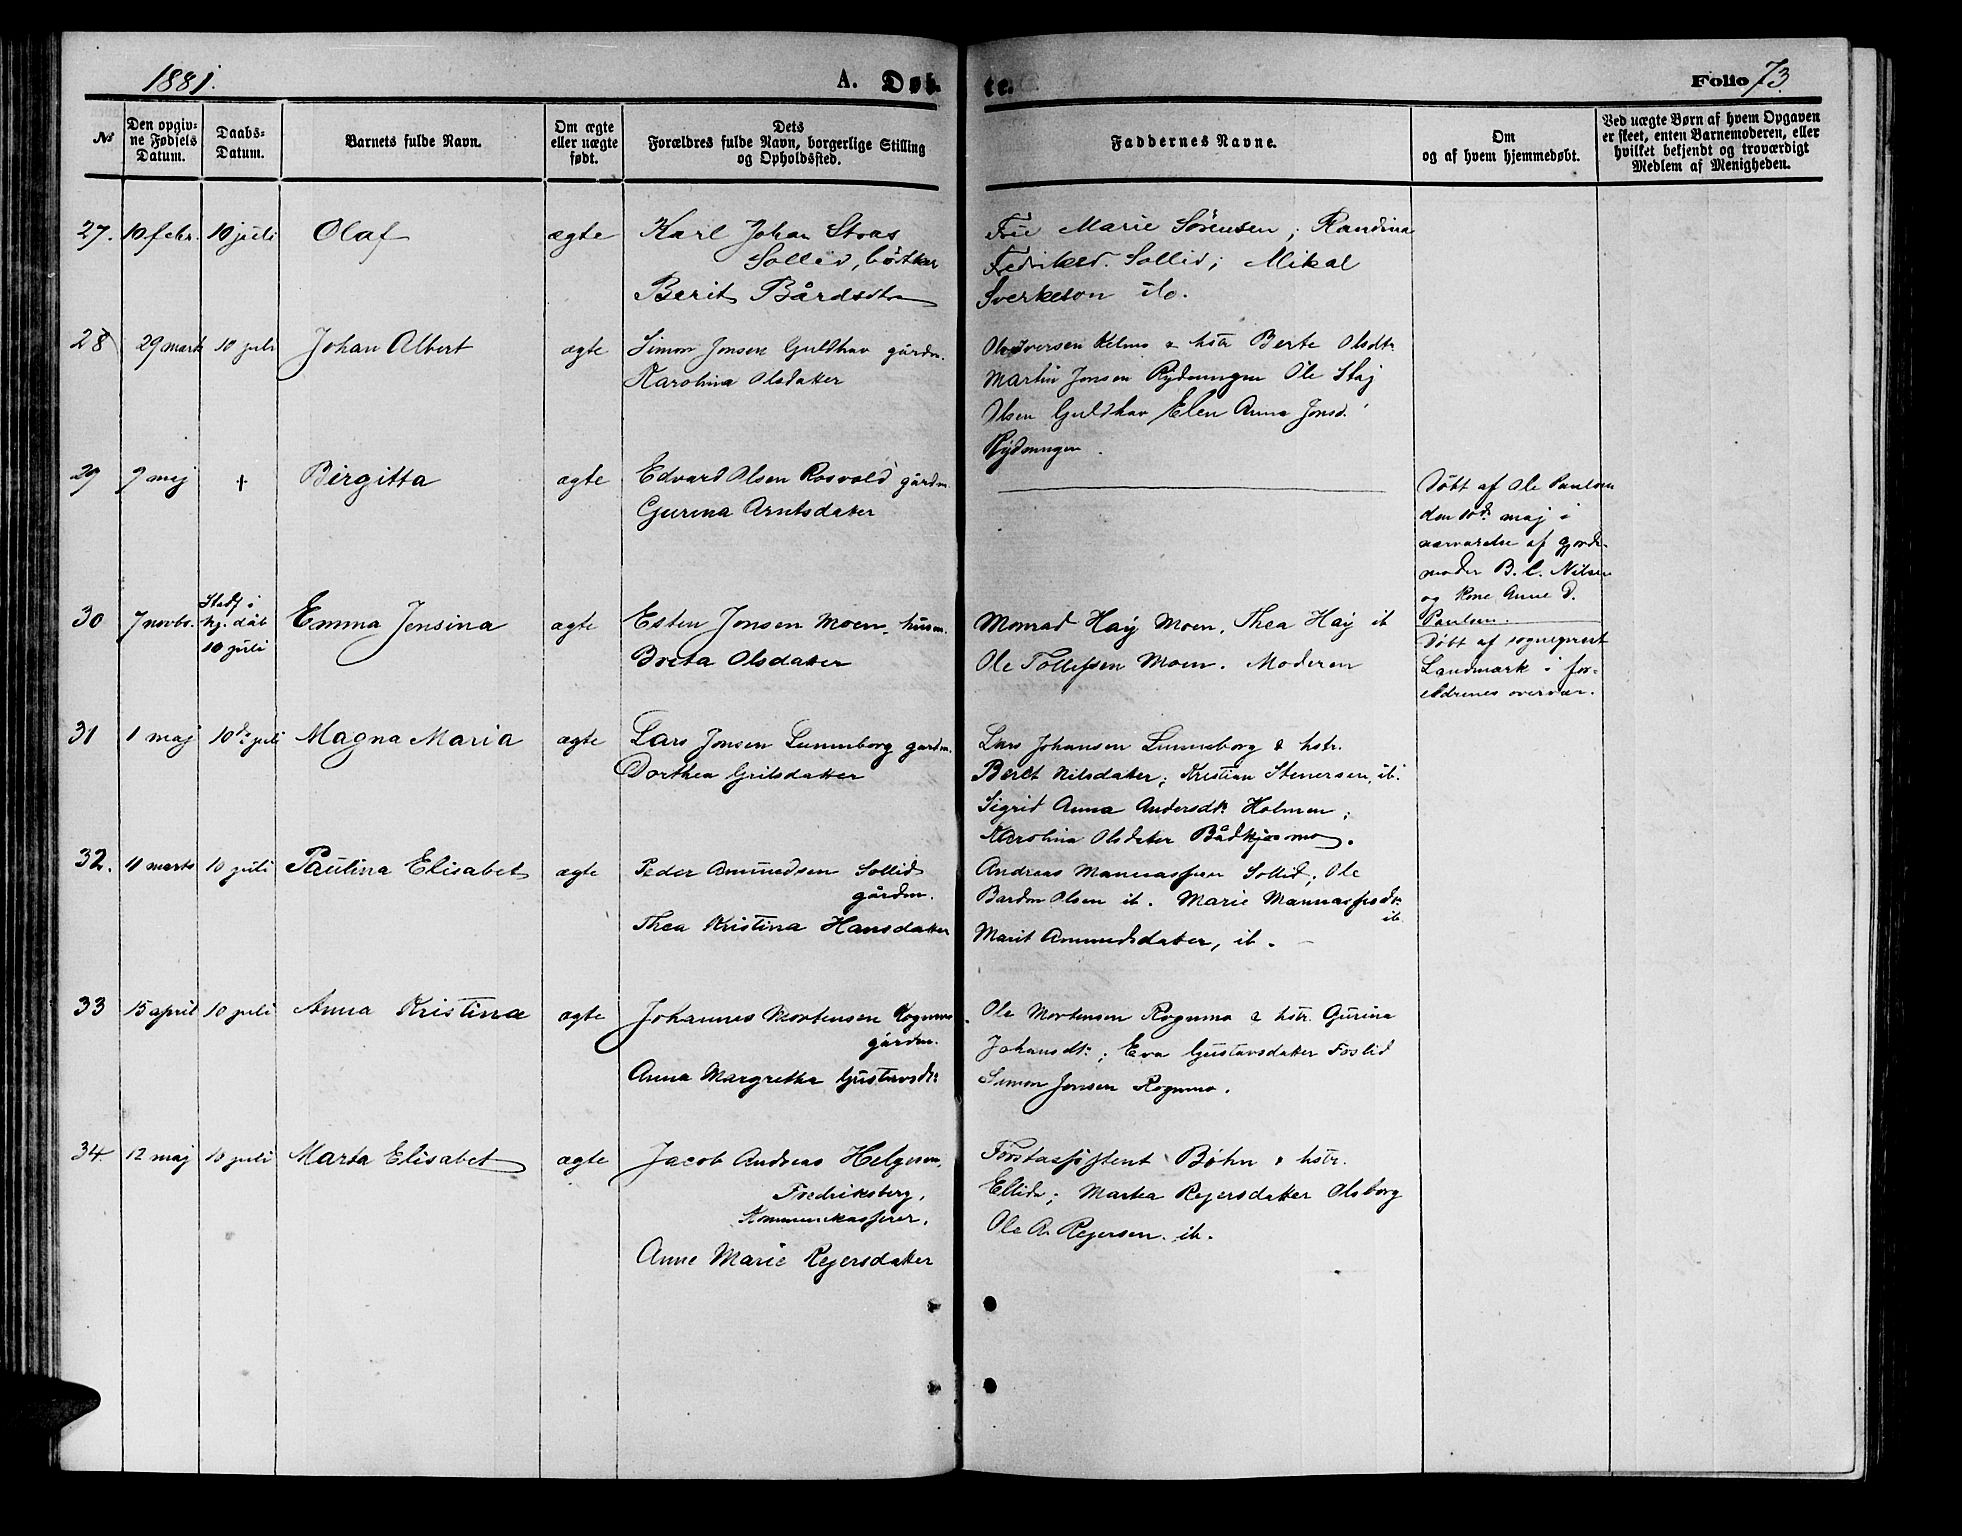 1881.
A. Døb-
te.
Folio 73.
№
Den opgiv-
ne Fødsels
Datum.
Daabs-
Datum.
Barnets fulde Navn.
Om ægte
eller uægte
født.
Dets
Forældres fulde Navn, borgerlige Stilling
og Opholdssted.
Faddernes Navne.
Om
og af hvem hjemmedøbt.
Ved uægte Børn af hvem Opgaven
er skeet, enten Barnemoderen, eller
hvilket bekjendt og troværdigt
Medlem af Menigheden.
27. 10 febr. 10 juli Olaf ægte Karl Johan
Sollid, bødker
Berit Bårdsdtr
Marie Sørensen; Randina
Fedriksd. Sollid; Mikal
Sverkeson ib.
28 29 marts 10 juli Johan Albert ægte Simon Jonsen Guldhav gårdm.
Karolina Olsdatter
Iversen Kelmo & hstr Berte Olsdtr
Martin Jonsen Rydningen Ole
Olsen Guldhav Elen Anna Jonsd.
Rydningen.
29 7 maj + Birgitta ægte Edvard Olsen Rosvold gårdm.
Gurina Arntsdatter
Døbt af Ole Paulsen
den 10d. maj i
nærværelse af gjorde-
moder B. C. Nilsen
og kone Anne D.
Paulsen.
30 7 novbr. Stadf i
hj. dåb
10 juli
Emma Jensina ægte Esten Jonsen Moen husm.
Breta Olsdatter
Monrad Haij Moen, Thea Haij ib
Ole Tollefsen Moen. Moderen
Døbt af sogneprest
Landmark i for-
eldrenes overvær.
31 1 maj 10d. juli Magna Maria ægte Lars Jonsen Lunneborg gårdm.
Dorthea Grilsdatter
Lars Johansen Lunneborg & hstr.
Beret Nilsdater; Kristian Stenersen, ib.
Sigrid Anna Andersdtr Holmen;
Karolina Olsdater Bådkjosmo.
32. 11 marts 10 juli Paulina Elisabet ægte Peder Amundsen Sollid
gårdm.
Thea Kristina Hansdatter
Andreas Mannassen Sollid; Ole
Bardon Olsen ib. Marie Mannassesdtr
ib
Marit Ammundsdater, ib.
33 15 april 10 juli Anna Kristina ægte Johannes Mortensen Rognmo
gårdm.
Anna Margretha Gustavsdtr
Ole Mortensen Rognmo & hstr. Gurina
Johansdtr; Eva Gustavsdater Foslid
Simon Jonsen Rognmo.
34. 12 maj 10 juli Marta Elisabet ægte Jacob Andreas Helgesen,
Fredriksberg,
Kommunekasserer,
Anne Marie Rejersdatter
Forstassistent Bøhn & hstr.
Ellid; Martea Rejersdatter Olsborg
Ole A. Rejersen. ib.